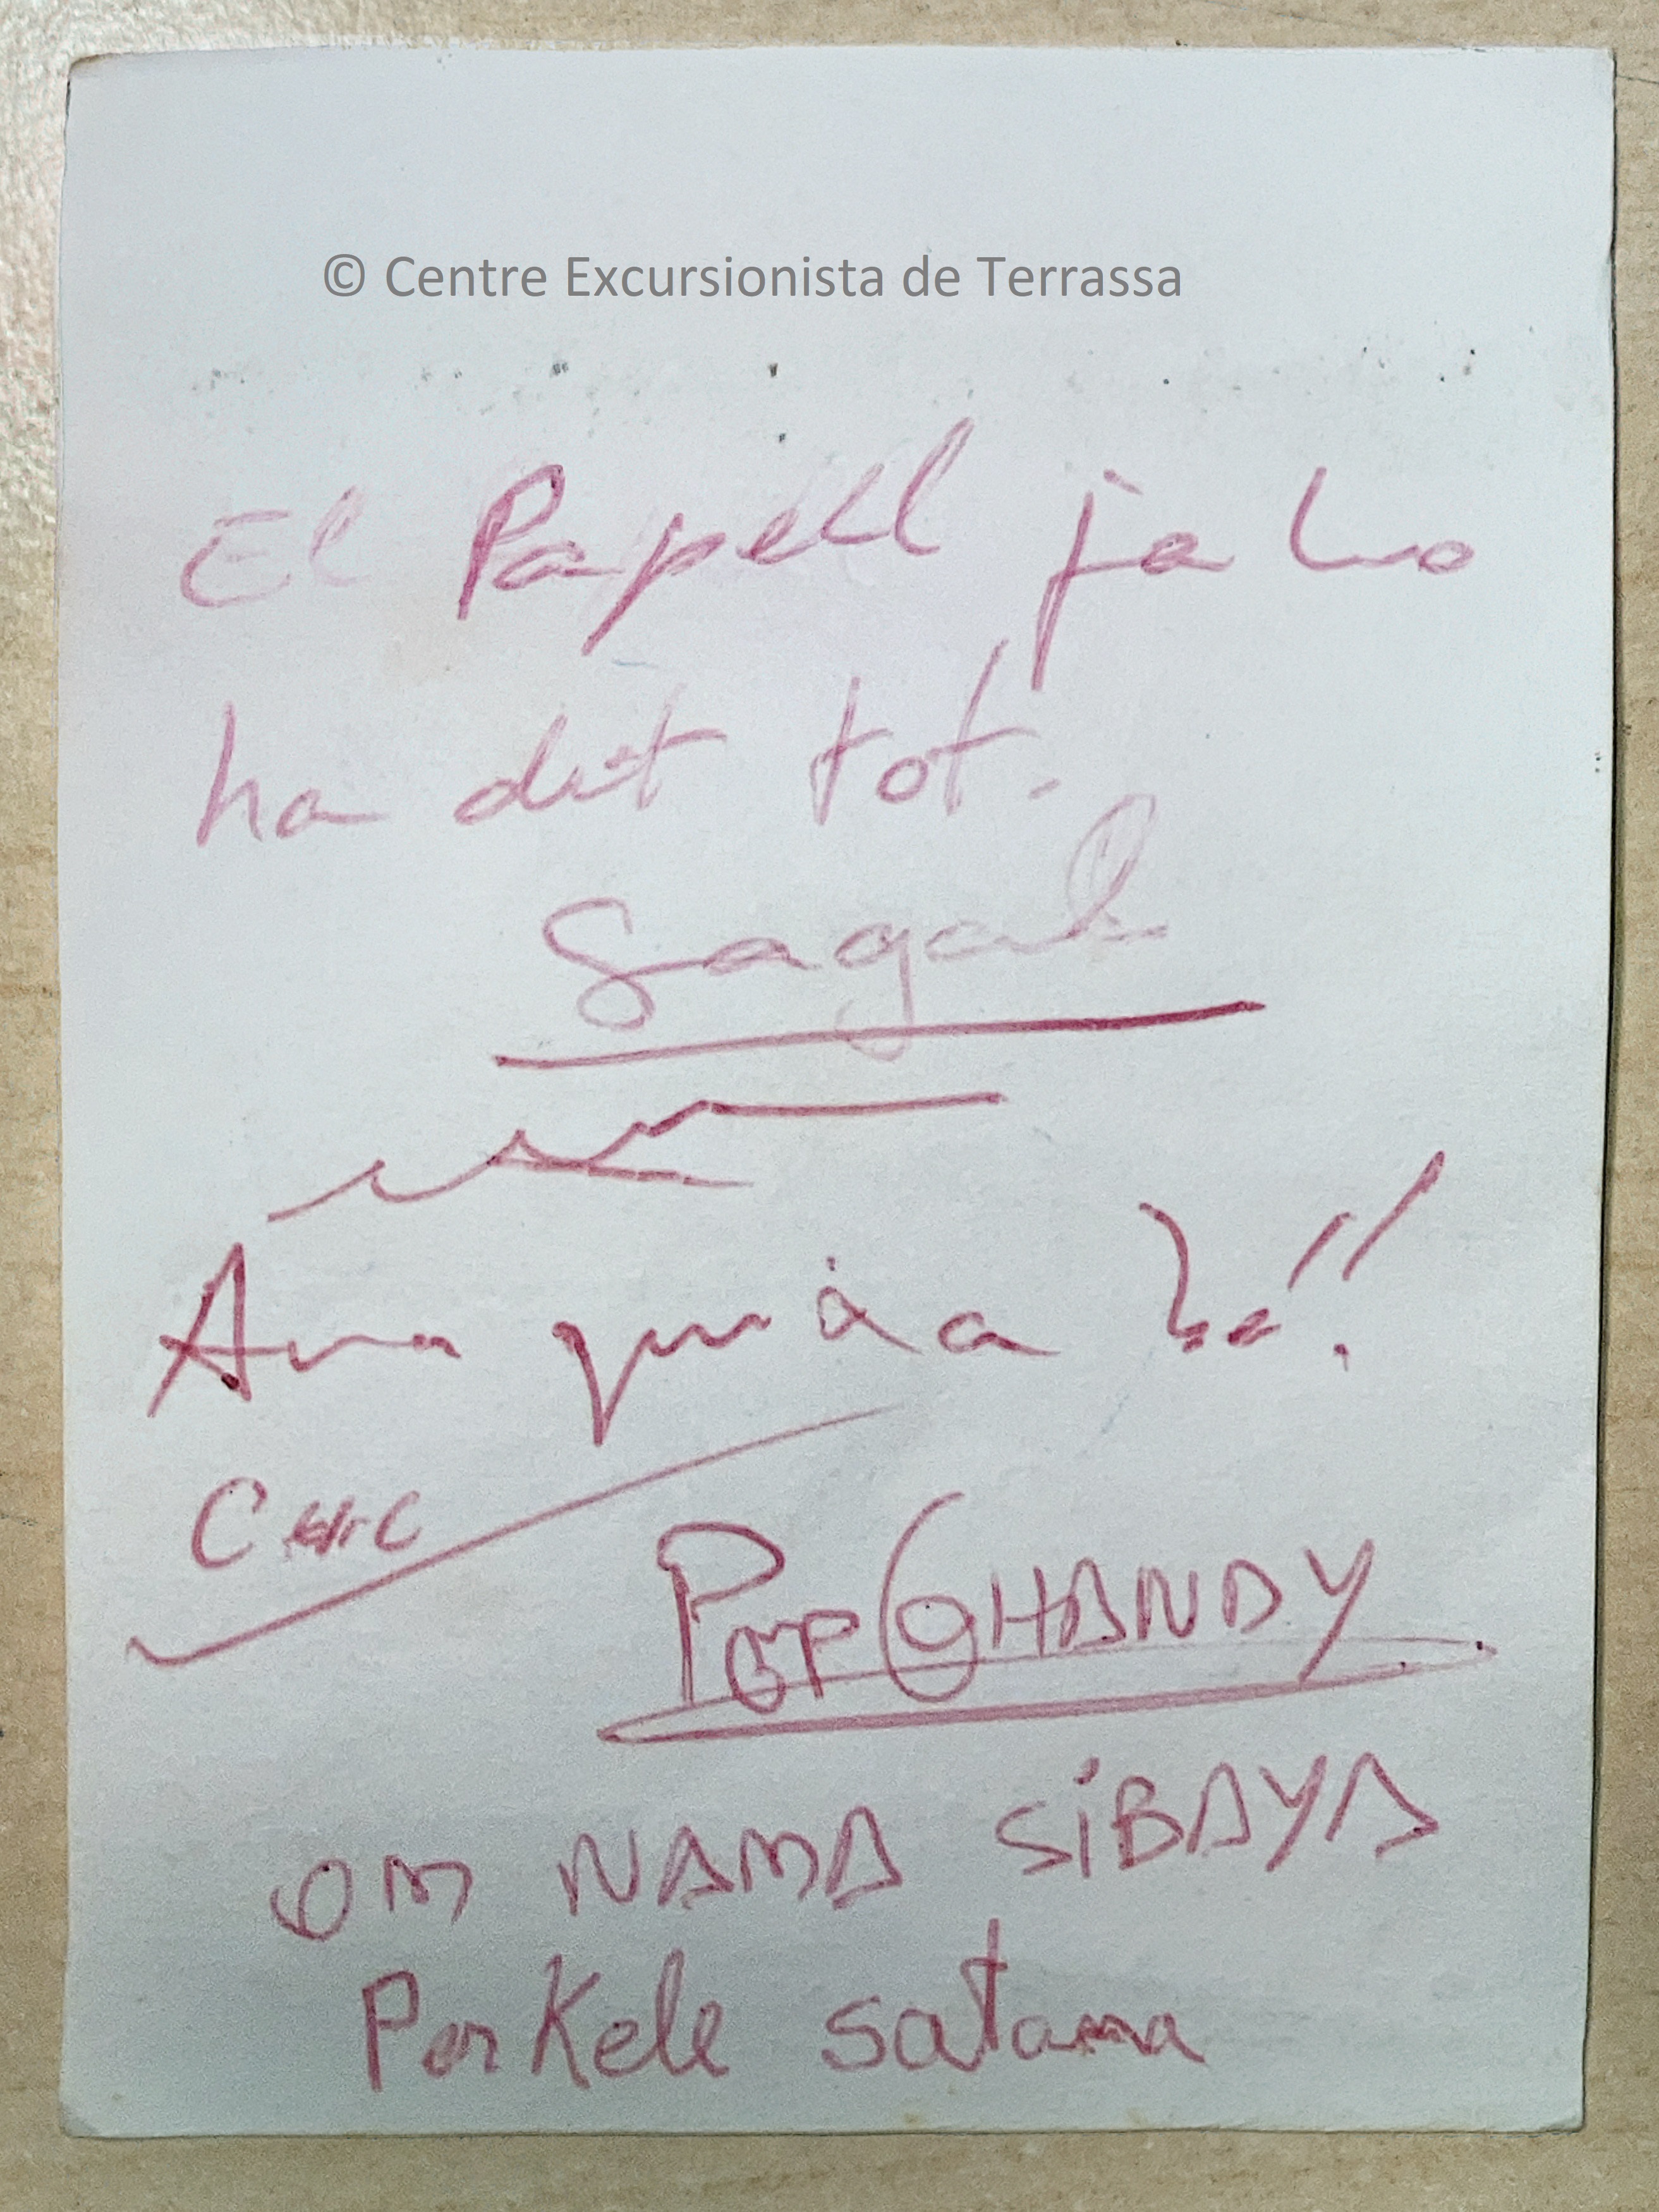 © Centre Excursionista de Terrassa
El Papell ja ho
ha dit tot.
Sagal
Ana
PepGHANDY
OM NAMA SiBAYA
PerKele satana